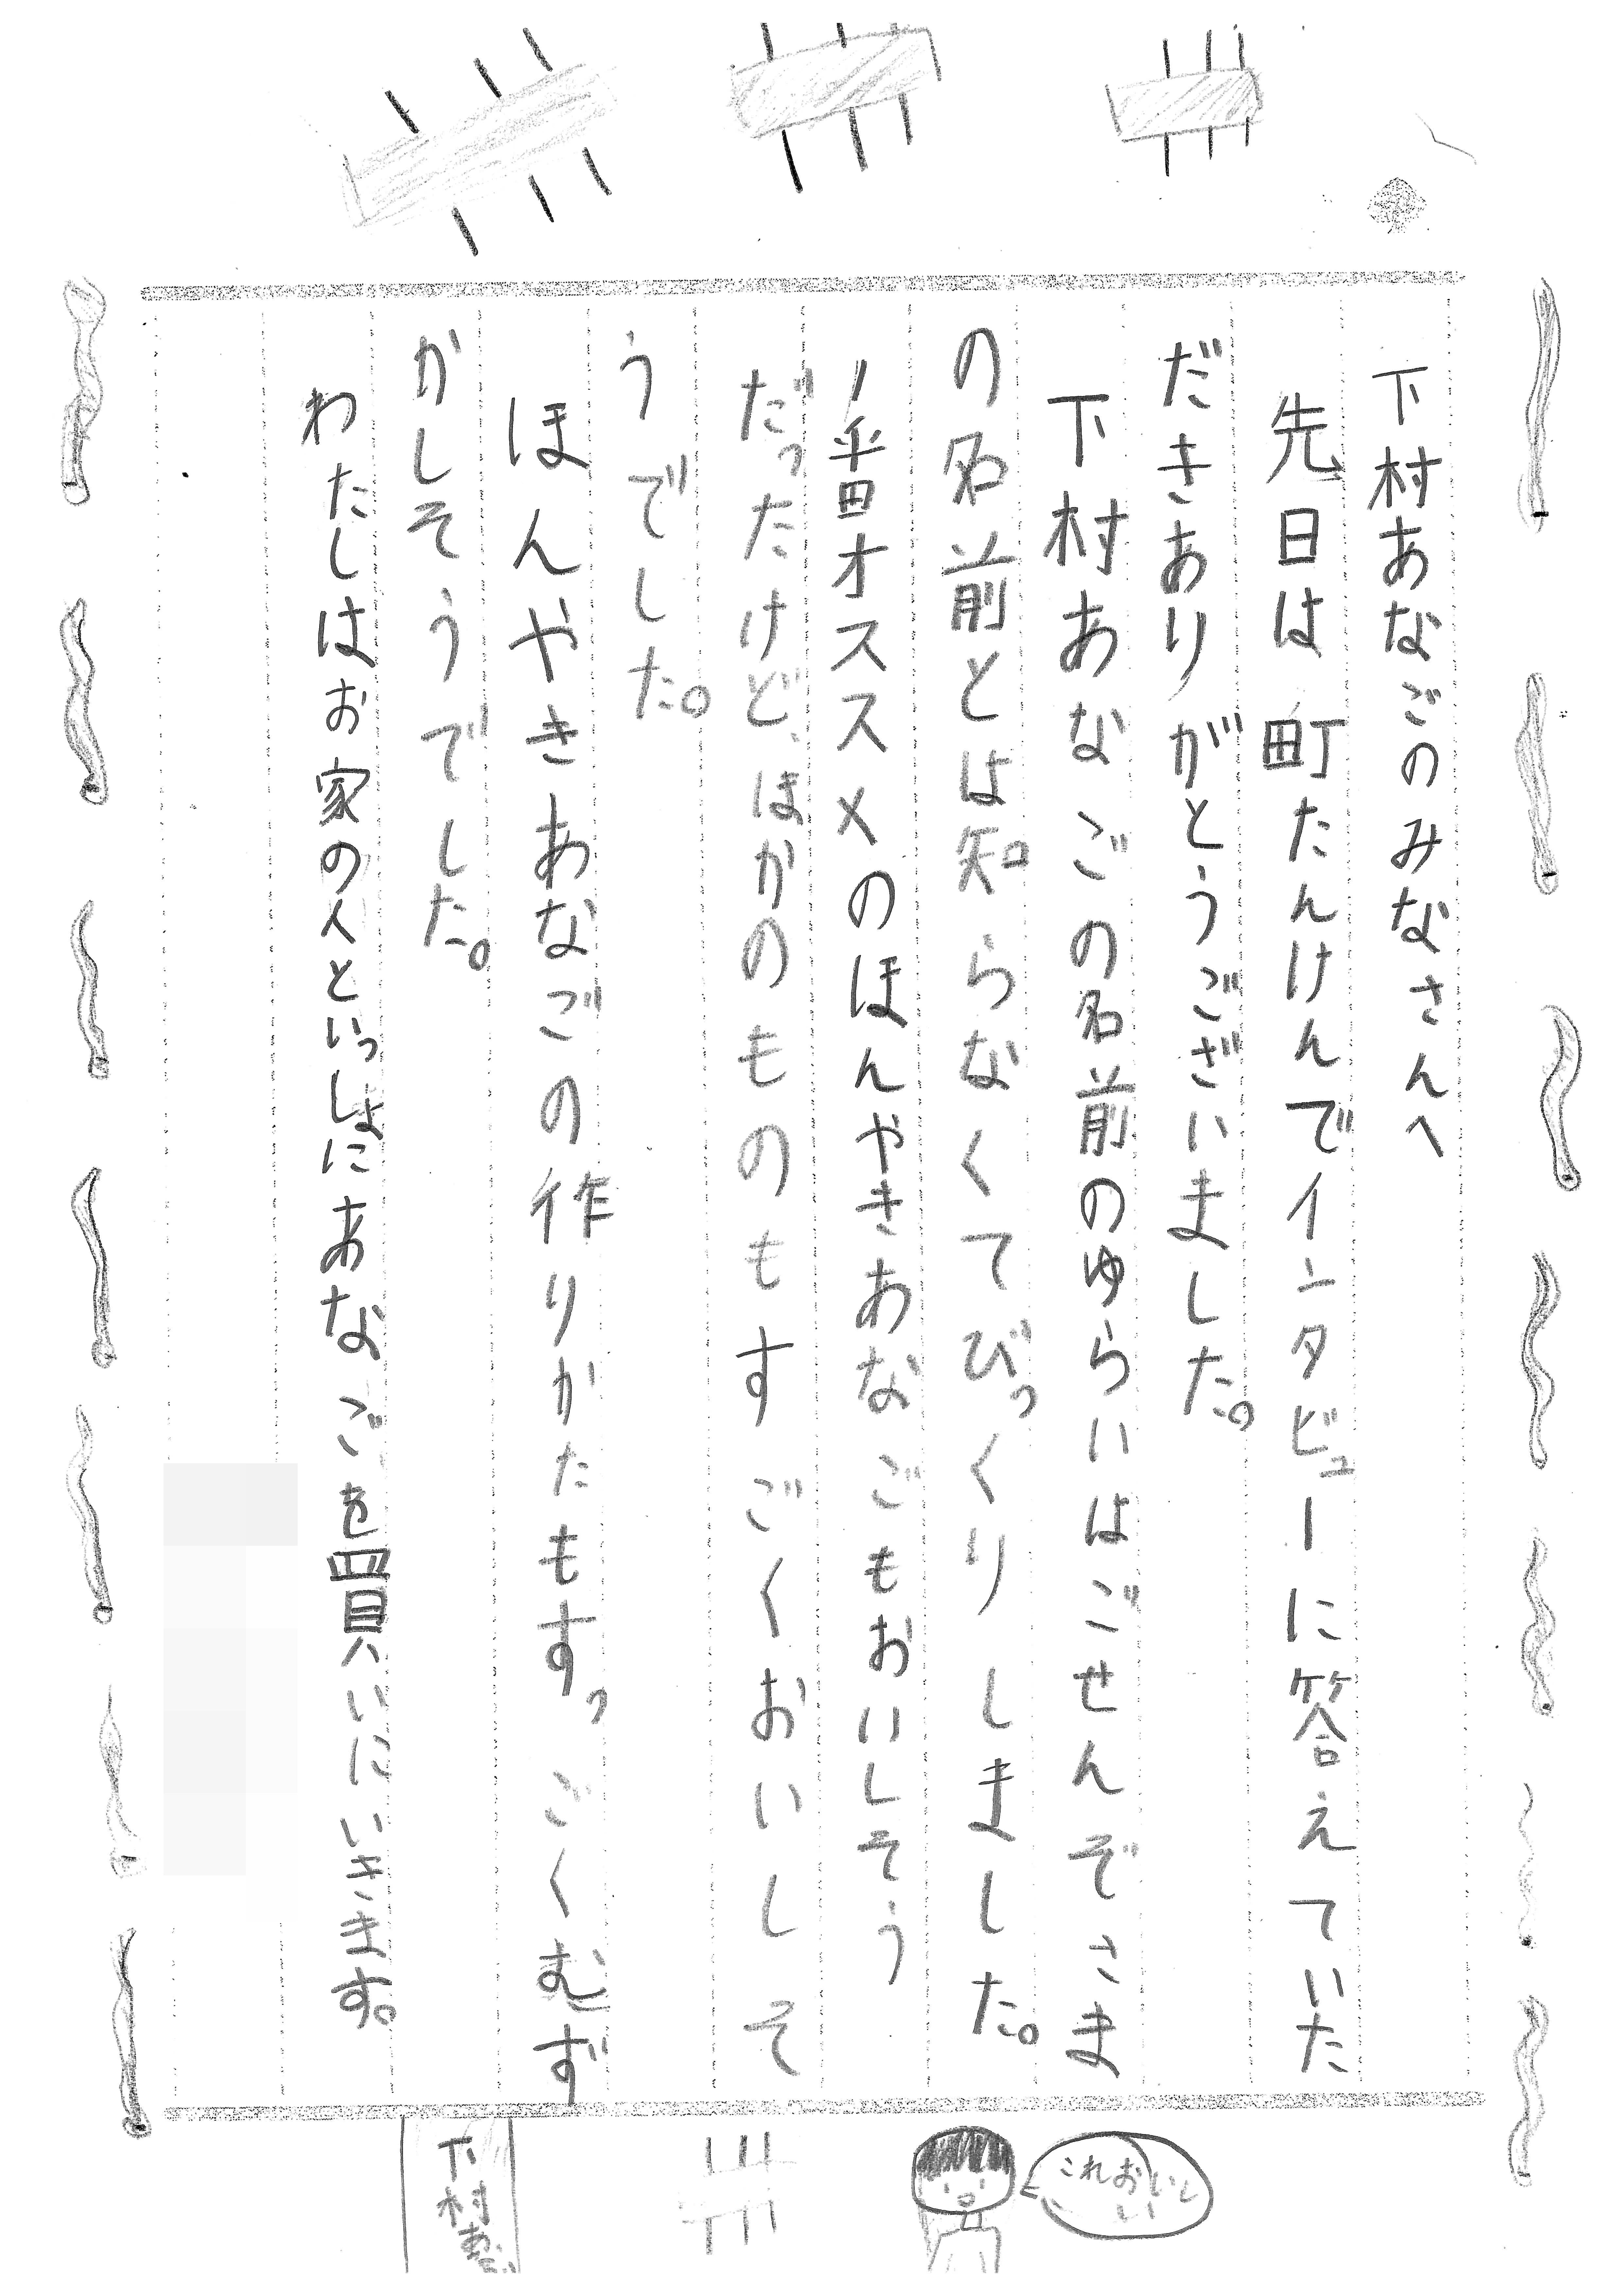 下村あなごのみなさんへ
先日は町たんけんでインタビューに答えていた
だきありがとうございました。
下村あなごの名前のゆらいはごせんぞさま
の名前とは知らなくてびっくりしました。
一番オススメのほんやきあなごもおいしそう
だったけど、ほかのものもすごくおいしそ
うでした。
ほんやきあなごの作りかたもすっごくむず
かしそうでした。
わたしはお家の人といっしょにあなごを買いにいきます。
これおいしい
下村あなご